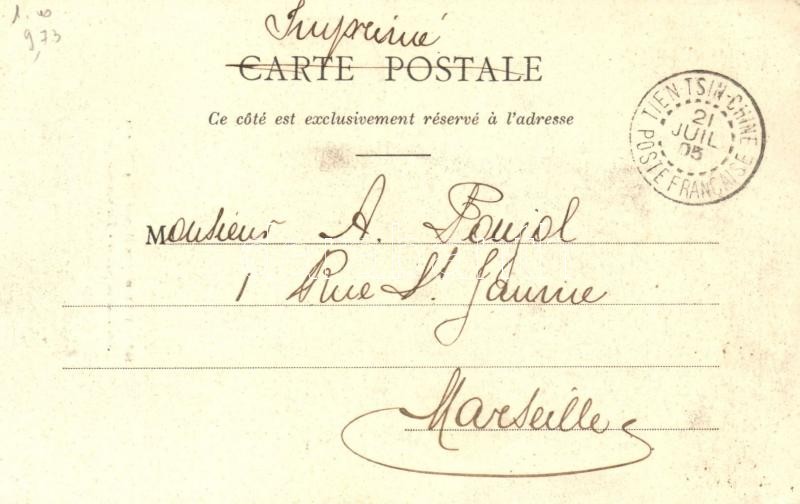 1.10
9,73
Imprimé
CARTE POSTALE
Ce côté est exclusivement réservé à l'adresse
TIEN-TSIN-CHINE
21
JUIL
05
POSTE FRANÇAISE
Monsieur A. Poujol
1 Rue St. Jaume
Marseille